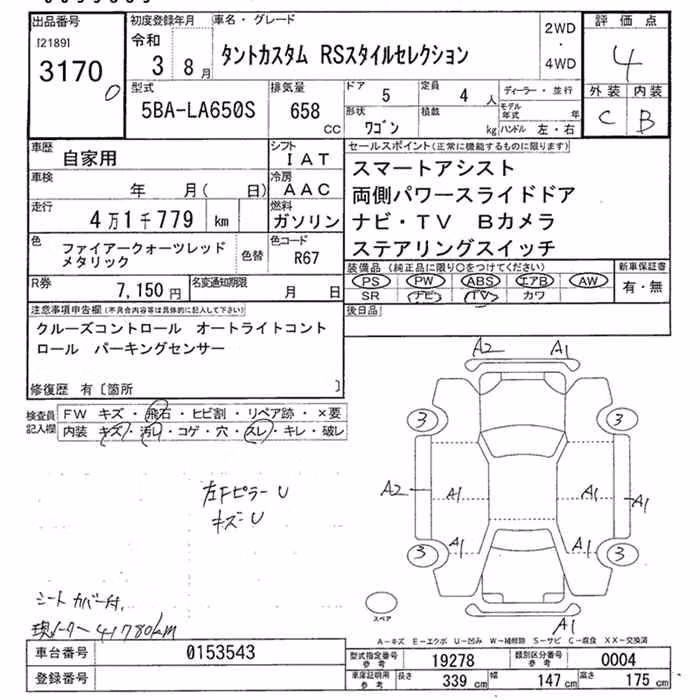 出品番号
[2189]
3170
0
初度登録年月
令和
3 8月
車名・グレード
タントカスタム RSスタイルセレクション
2WD
・
4WD
評価点
4
外装 内装
C B
型式
5BA-LA650S
排気量
658
CC
ドア
5
定員
4 人
ディーラー・並行
形状
ワゴン
積載
kg
モデル年式 年
ハンドル 左・右
車歴
自家用
シフト
IAT
車検
年 月( 日)
冷房
AAC
走行
4万1千779 km
燃料
ガソリン
色
ファイアークォーツレッド
メタリック
色替
色コード
R67
R券
7,150円
名変通知期限
月 日
セールスポイント(正常に機能するものに限ります)
スマートアシスト
両側パワースライドドア
ナビ・TV Bカメラ
ステアリングスイッチ
装備品 (純正品に限り○をつけてください)
PS PW ABS エアB AW
SR ナビ TV カワ
新車保証書
有・無
後日品
注意事項申告欄(不具合内容等は具体的に記入して下さい)
クルーズコントロール オートライトコント
ロール パーキングセンサー
修復歴 有〔箇所 〕
検査員
記入欄
FW キズ・飛石・ヒビ割・リペア跡・×要
内装 キズ・汚レ・コゲ・穴・スレ・キレ・破レ
左Fピラー U
キズ・U
シートカバー付.
現メーター 41780km
A2 A1
3 3
A2 A1 A1 A1
A1 A1
3 3
A1
スペア
A-キズ E-エクボ U-凹み W-補修跡 S-サビ C-腐食 XX-交換済
車台番号
0153543
登録番号
型式指定番号
参考
19278
類別区分番号
参考
0004
車庫証明用
参考
長さ
339 cm
幅
147 cm
高さ
175 cm